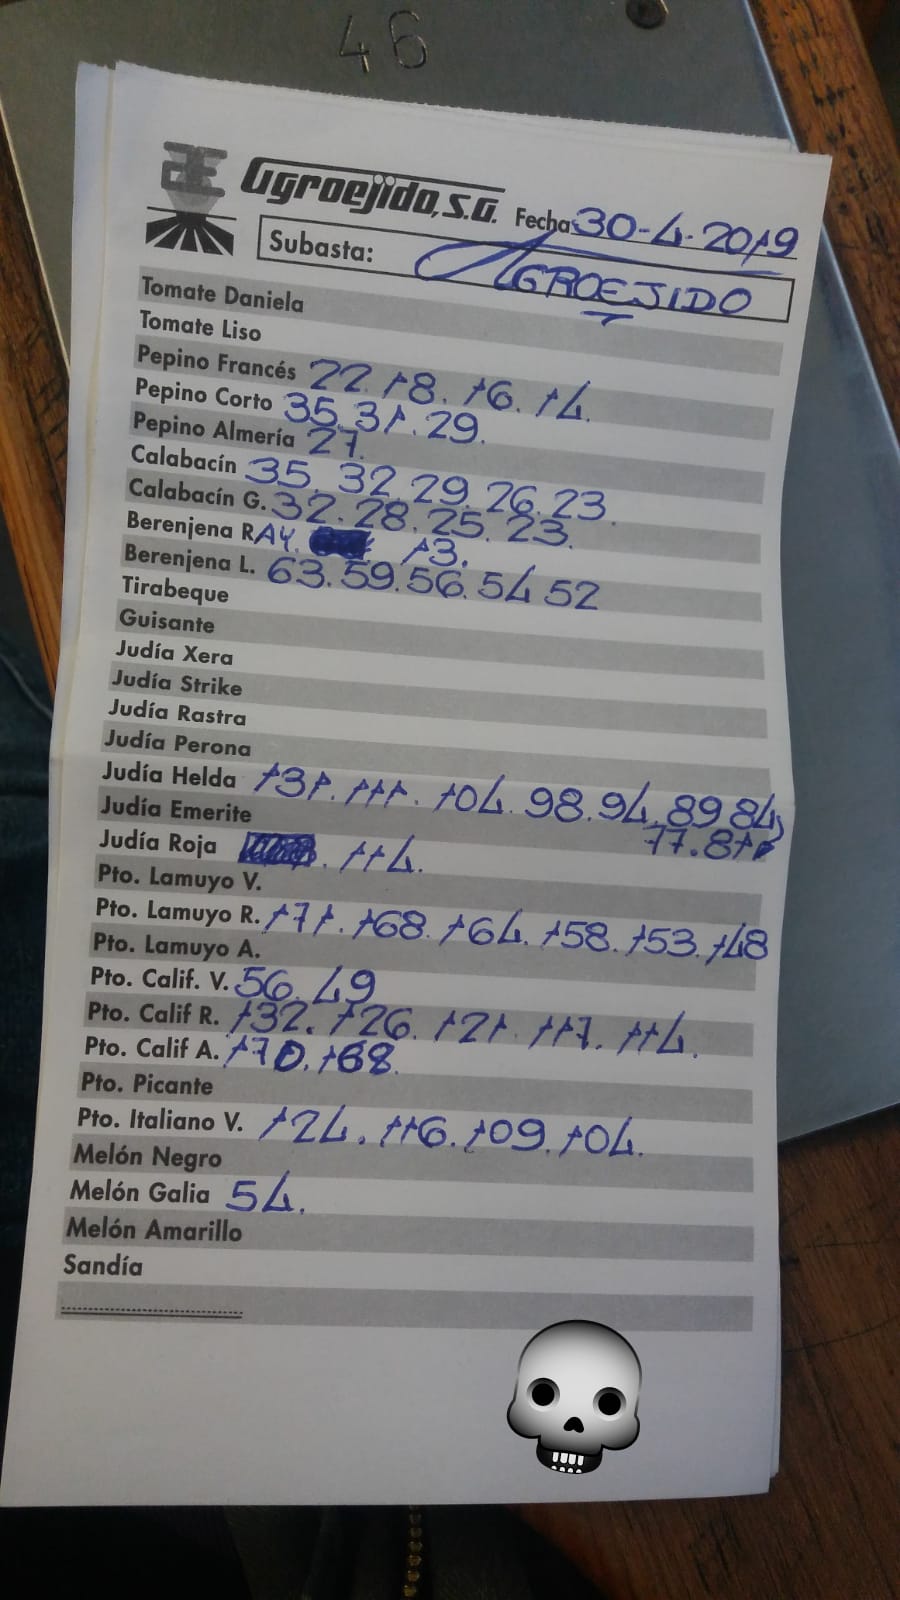 46
Agroejido, S.A. Fecha 30-4-2019
Subasta: AGROEJIDO
Tomate Daniela
Tomate Liso
Pepino Francés 22. 18. 16. 14.
Pepino Corto 35. 31. 29.
Pepino Almería 27.
Calabacín 35. 32. 29. 26. 23.
Calabacín G. 32. 28. 25. 23.
Berenjena RAY. 13.
Berenjena L. 63. 59. 56. 54 52
Tirabeque
Guisante
Judía Xera
Judía Strike
Judía Rastra
Judía Perona
Judía Helda 131. 111. 104. 98. 94. 89 84
Judía Emerite 77. 81
Judía Roja . 114.
Pto. Lamuyo V.
Pto. Lamuyo R. 171. 168. 164. 158. 153. 148
Pto. Lamuyo A.
Pto. Calif. V. 56. 49
Pto. Calif R. 132. 126. 121. 117. 114.
Pto. Calif A. 170. 168.
Pto. Picante
Pto. Italiano V. 124. 116. 109. 104.
Melón Negro
Melón Galia 54.
Melón Amarillo
Sandía